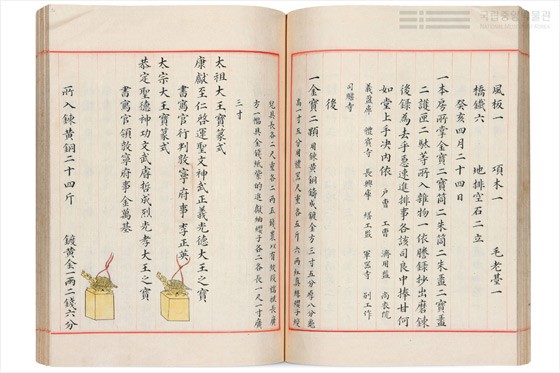 국립중앙박물관
NATIONAL MUSEUM OF KOREA
風板一 項木一 毛老臺一
橋鐵六 地排空石二立
癸亥四月二十四日
一本房所掌金寶二寶筒二朱筒二朱盝二寶盝
二護匣二脉等所入雜物一依謄錄抄出磨鍊
後錄爲去乎急速進排事各該司良中捧甘何
如堂上手决內依
戶曹 工曹 濟用監 尙衣院
義盈庫 禮賓寺 長興庫 繕工監 軍器寺 別工作
司䆃寺
後
一金寶二顆
用鍊黃銅鑄成鍍金方三寸五分厚八分龜
高一寸五分
三寸
太祖大王寶篆式
康獻至仁啓運聖文神武正義光德大王之寶
書寫官行判敦寧府事李正英
太宗大王寶篆式
恭定聖德神功文武睿哲成烈光孝大王之寶
書寫官領敦寧府事金萬基
所入鍊黃銅二十四斤 鍍黃金一兩二錢六分